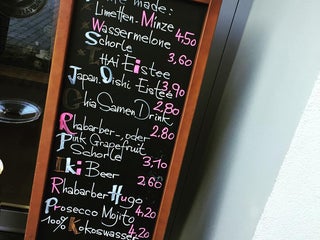 made:
Limetten-Minze
Wassermelone 4,50
Schorle
3,60
THAI Eistee
Japan. Oishi Eistee 3,90
Chia Samen Drink 2,80
Rhabarber-, oder 2.80
Pink Grapefruit
Schorle 3,10
Iki Beer 2,60
Rhabarber Hugo
4,20
Prosecco Mojito
100% Kokoswasser 4,20